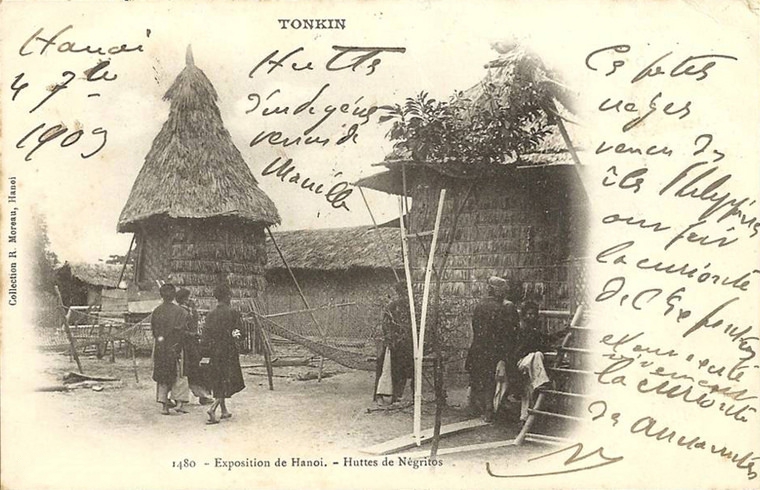 TONKIN
Hanoi
4 7bre
1903
Huttes
d'indigènes
venus de
Manille
Ces petits
nègres
venus des
îles Philippines
ont fait
la curiosité
de l'Exposition
et ont excité
vivement
la curiosité
des annamites
Collection R. Moreau, Hanoi
1480 - Exposition de Hanoi. - Huttes de Négritos